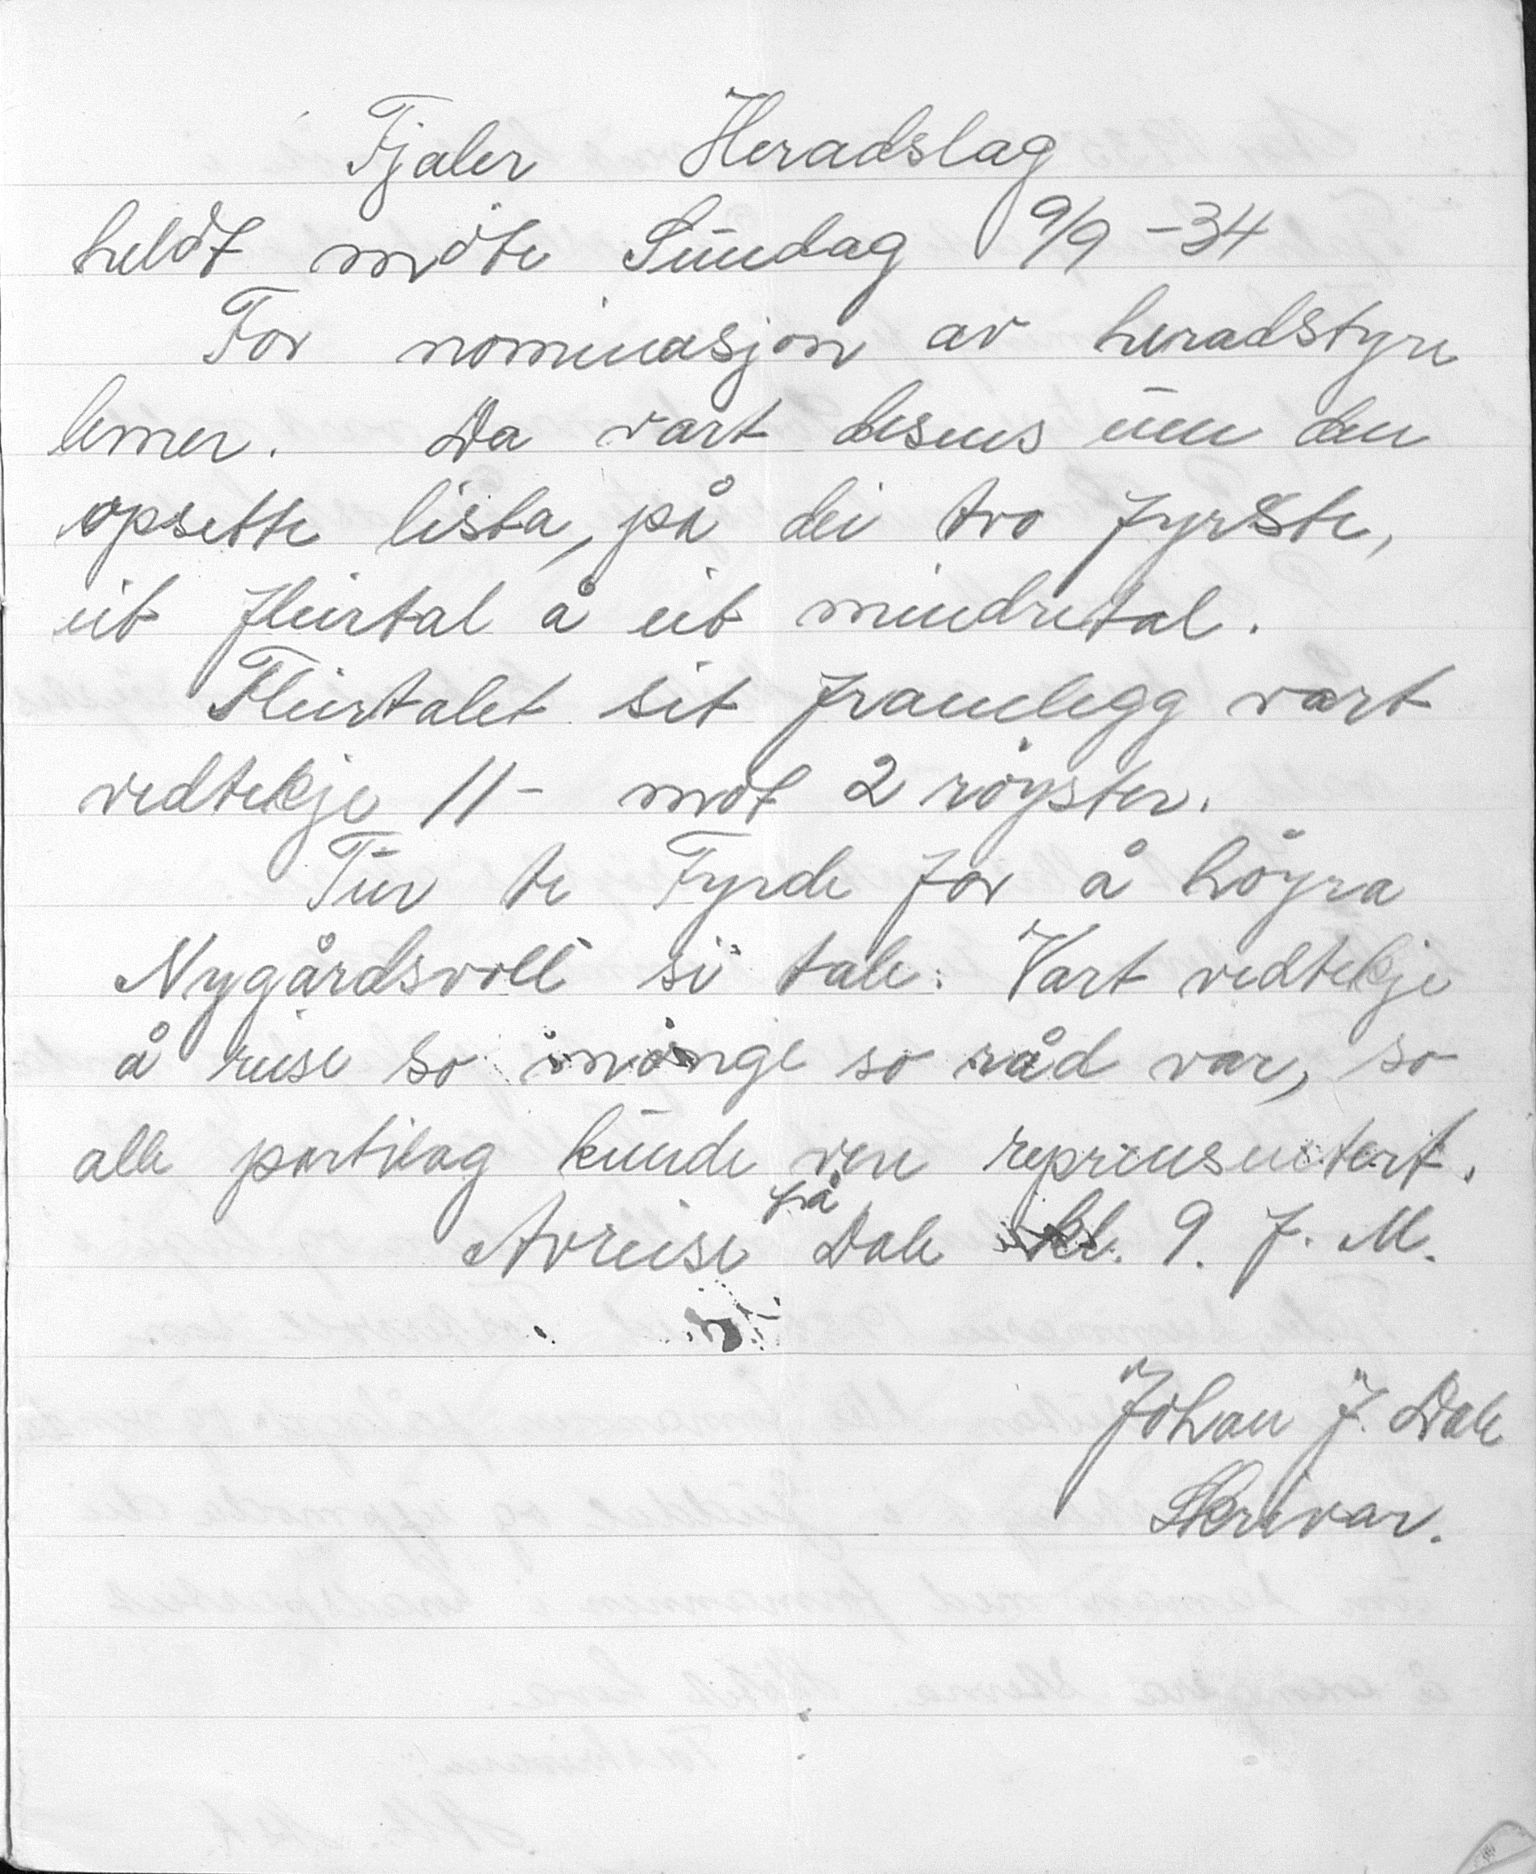 Fjaler Heradslag
heldt møte Sundag 9/9 - 34
For nominasjon av heradstyre
lemer. Da vart desens um den
opsette lista, på dei tvo fyrste,
eit fleirtal å eit mindretal.
Fleirtalet sit framlegg vart
vedtekje 11 - mot 2 röyster.
Tur te Fyrde for å höyra
Nygårdsvoll si tale: Vart vedtekje
å reise so mange so råd var, so
alle partilag kunde vere reprensentert.
Avreise på Dale kl. 9. F. M.
Johan J. Dale
Skrivar.